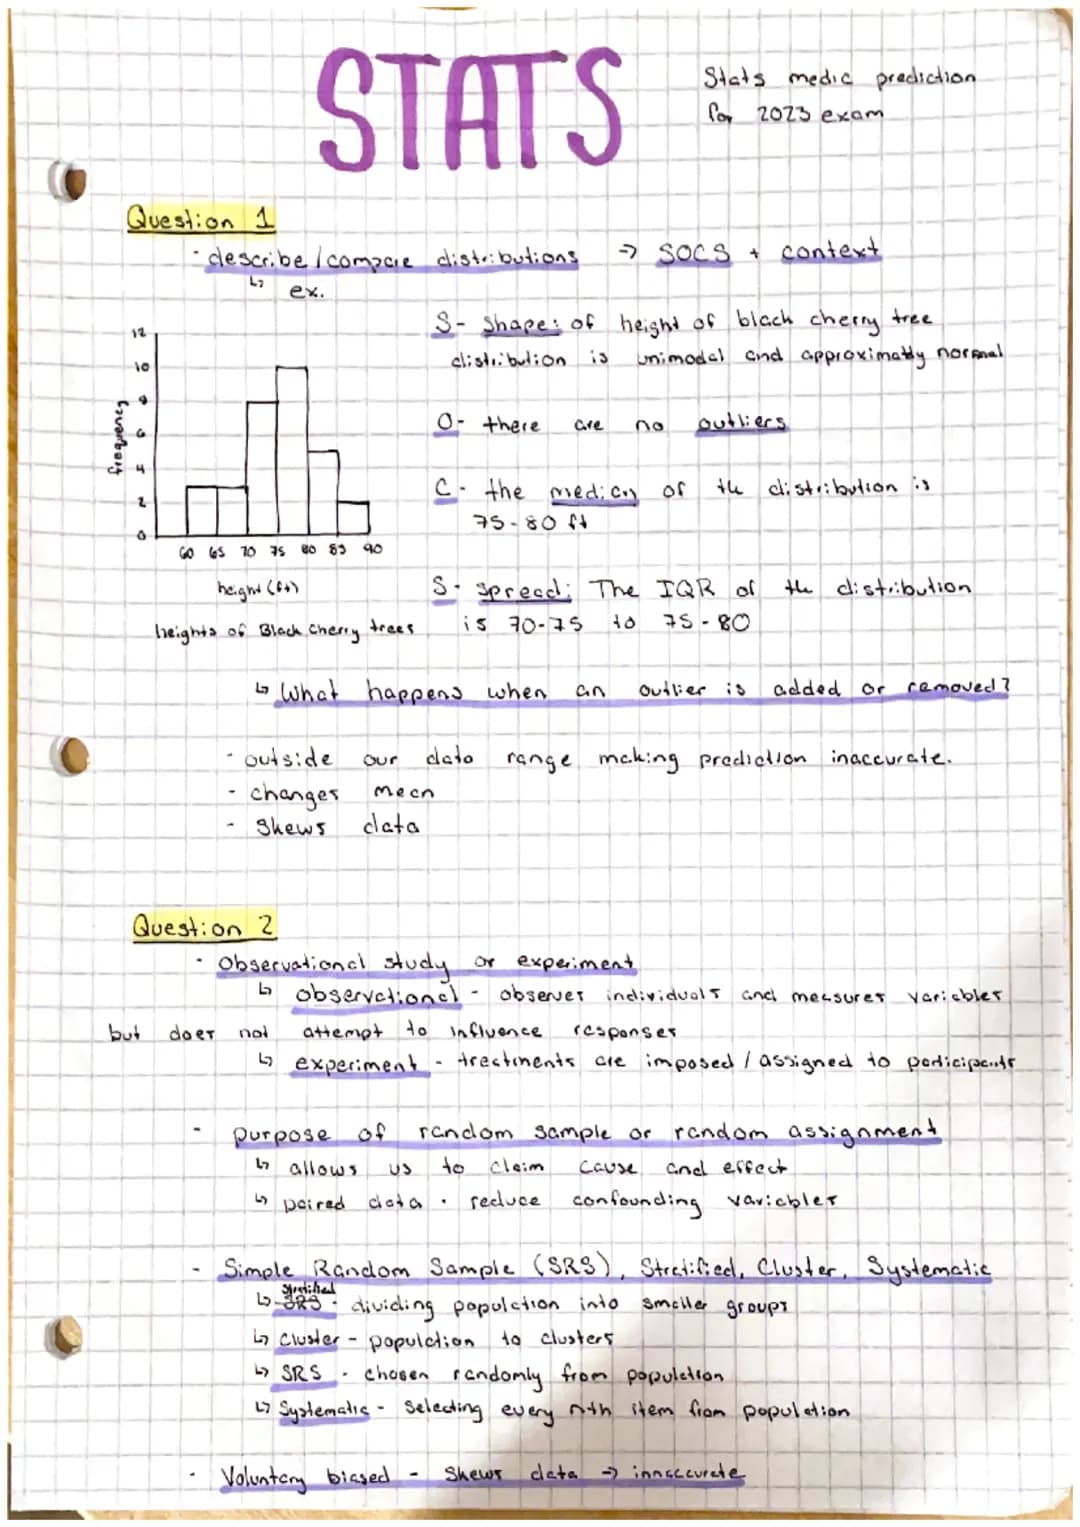 STATS
Stats medic prediction
for 2023 exam
Question 1
- describe/compare distributions → SOCS + context
↳ ex.
12
10
8
6
4
2
0
frequency
60 65 70 75 80 85 90
height (ft)
heights of Black Cherry trees
S- Shape: of height of black cherry tree
distribution is unimodal and approximatly normal
O- there are no outliers
C- the median of the distribution is
75-80 ft
S- Spread: The IQR of the distribution
is 70-75 to 75-80
↳ What happens when an outlier is added or removed?
- outside our data range making prediction inaccurate.
- changes mean
- Skews data
Question 2
- Observational study or experiment
↳ observational - observes individuals and measures variables
but does not attempt to influence responses
↳ experiment - treatments are imposed / assigned to participants
- purpose of random sample or random assignment
↳ allows us to claim cause and effect
↳ paired data - reduce confounding variables
- Simple Random Sample (SRS), Stratified, Cluster, Systematic
Stratified
↳ SRS - dividing population into smaller groups
↳ Cluster - population to clusters
↳ SRS - chosen randomly from population
↳ Systematic - Selecting every nth item from population
- Voluntary biased - Skews data → innaccurate